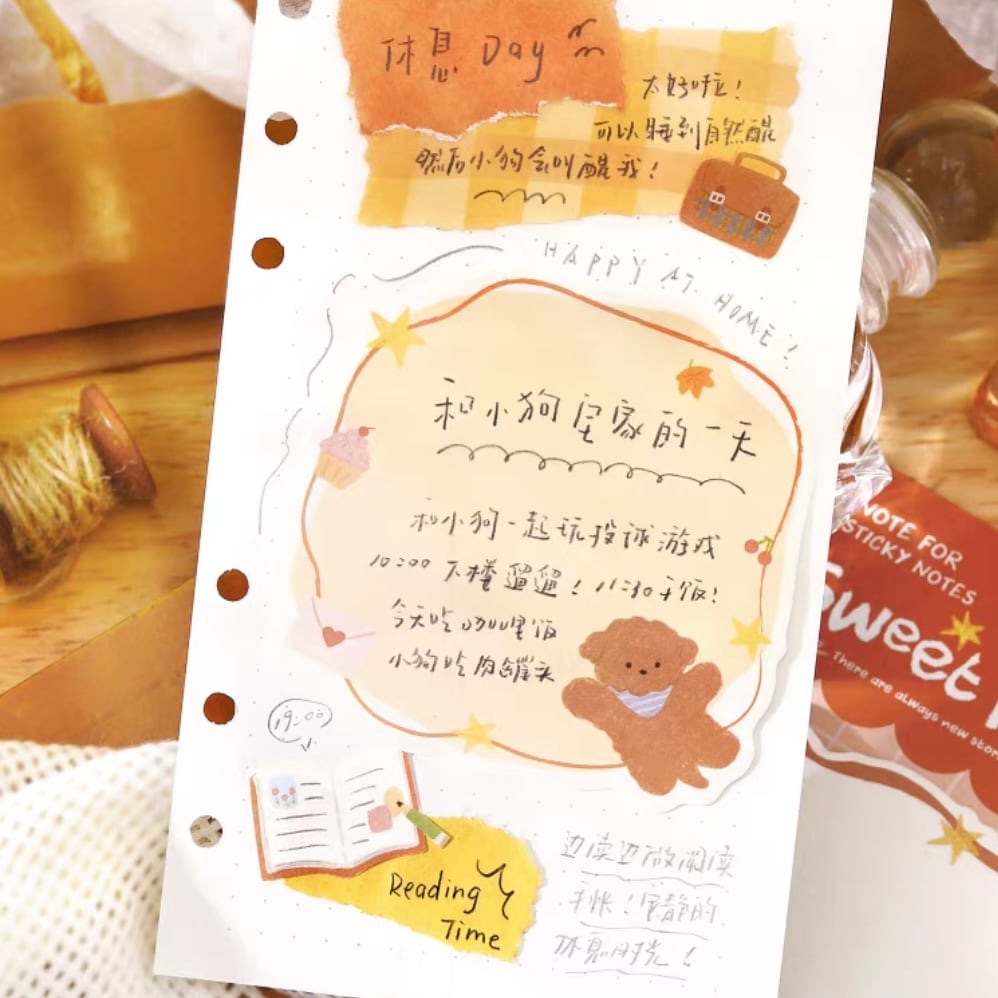 休息 Day
太好啦！
可以睡到自然醒
然后小狗会叫醒我！
HAPPY AT HOME!
和小狗宅家的一天
和小狗一起玩投球游戏
10:00 下楼遛遛！11:30 干饭！
今天吃咖喱饭
小狗吃肉罐头
19:00
Reading
Time
边读边做阅读
手帐！安静的
休息时光！
NOTE FOR
STICKY NOTES
Sweet
There are always new stor